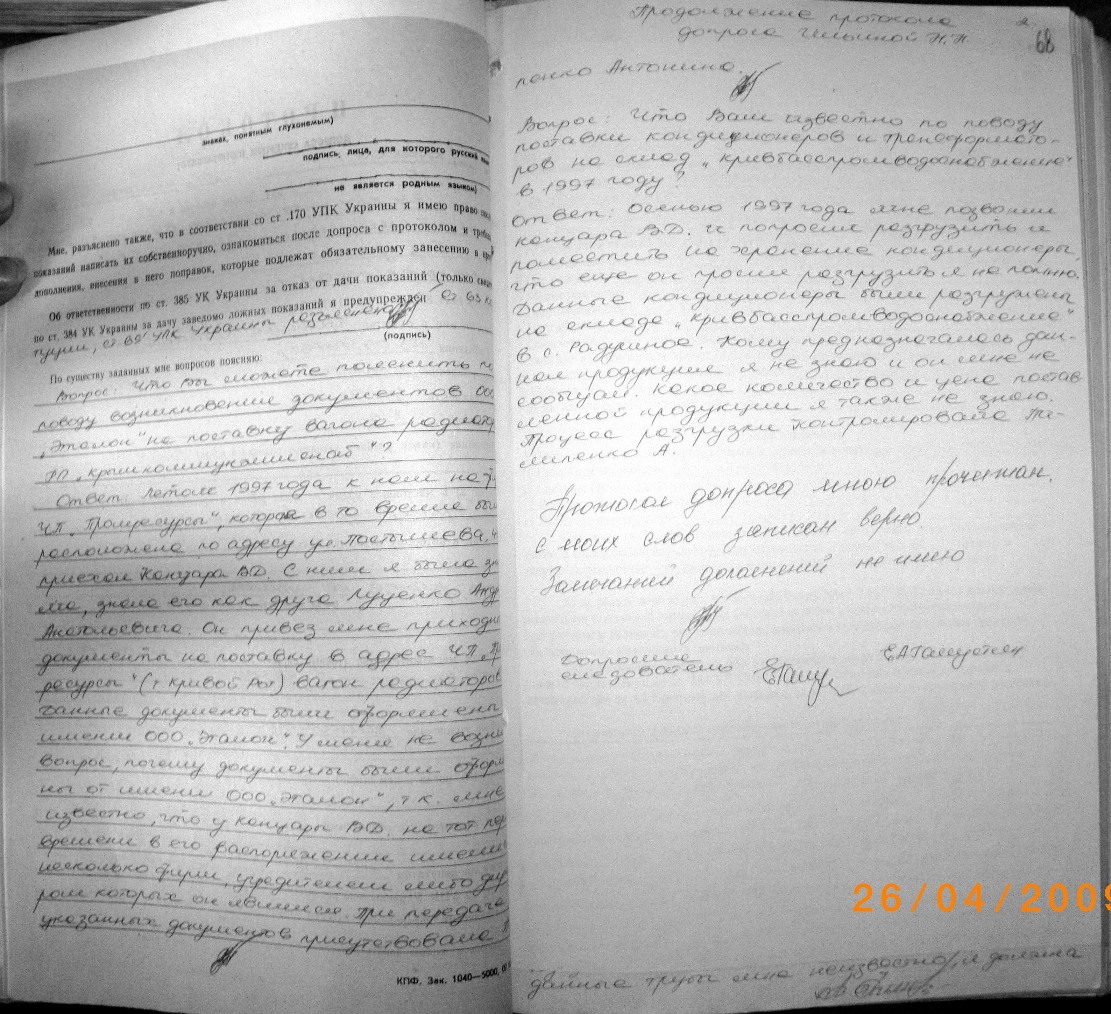 знаках, понятным глухонемым)
подпись лица, для которого русский
не является родным языком)
Мне, разъяснено также, что в соответствии со ст .170 УПК Украины я имею право
показаний написать их собственноручно, ознакомиться после допроса с протоколом и
дополнения, внесения в него поправок, которые подлежат обязательному занесению в
Об ответственности по ст. 385 УК Украины за отказ от дачи показаний (только
по ст. 384 УК Украины за дачу заведомо ложных показаний я предупрежден ст 63
ст. 69' УПК Украины разъяснена
(подпись)
По существу заданных мне вопросов поясняю:
Вопрос: Что Вы можете пояснить п
поводу возникновения документов ООО
„Эталон" на поставку вагона радиатор
ПП „Крымкоммункомплснаб"?
Ответ: Летом 1997 года к нам на
ЧП „Промресурсы", которое в то время был
расположено по адресу ул. Постышева,
приехал Канцара В.Д. С ним я была зн
ма, знала его как друга Луценко Андр
Анатольевича. Он привез мне приходн
документы на поставку в адрес ЧП „Пр
ресурсы" (г Кривой Рог) вагон радиаторов
Данные документы были оформлены
имени ООО „Эталон". У меня не возни
вопрос, почему документы были оформ
ны от имени ООО „Эталон", т к. мне
известно, что у Канцары В.Д. на тот пер
времени в его распоряжении имели
несколько фирм, учредителем либо ди
ром которых он являлся. При передаче
указанных документов присутствовала
КПФ, Зак. 1040—5000,
Продолжение протокола 2.
допроса Ильиной Н.Н. 68
ленко Антонина.
Вопрос: Что Вам известно по поводу
поставки кондиционеров и трансформато-
ров на склад „Кривбасспромводоснабжение"
в 1997 году?
Ответ: Осенью 1997 года мне позвонил
Канцара В.Д. и попросил разгрузить и
поместить на хранение кондиционеры,
что еще он просил разгрузить я не помню.
Данные кондиционеры были разгружены
на складе „Кривбасспромводоснабжение"
в с. Радушное. Кому предназначалась дан-
ная продукция я не знаю и он мне не
сообщал. Какое количество и цена постав
ленной продукции я также не знаю.
Процесс разгрузки контролировала Те-
миленко А.
Протокол допроса мною прочитан,
с моих слов записан верно
Замечаний дополнений не имею
Допросила
следователь
26/04/2009
данные трубы мне неизвестно, я должна